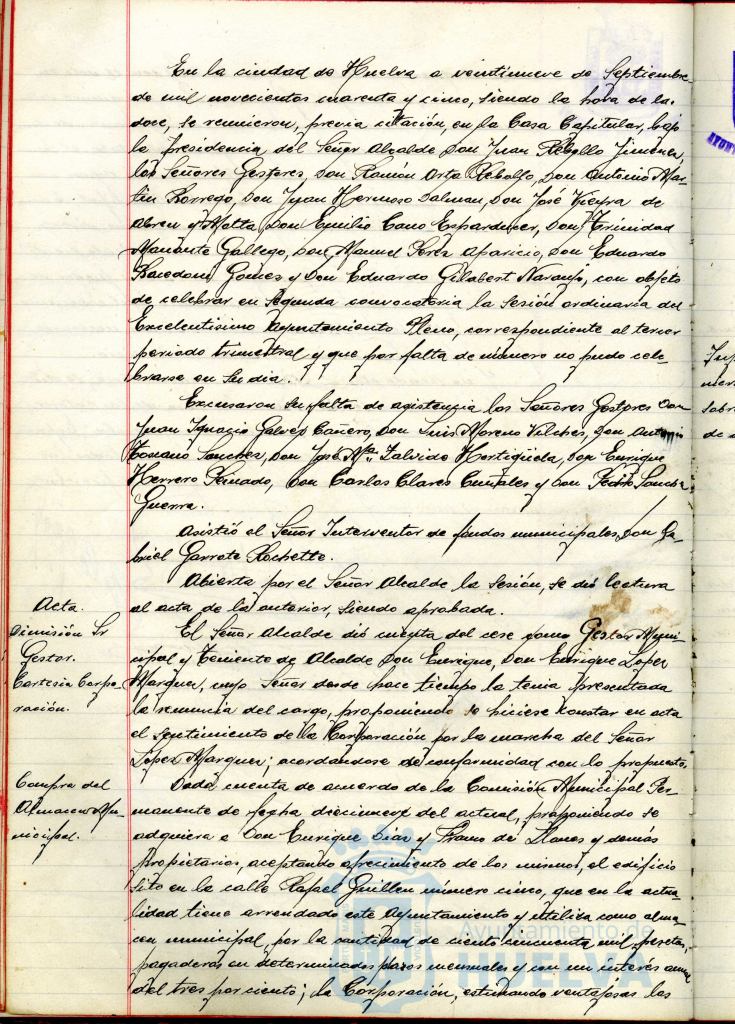 En la ciudad de Huelva a veintinueve de Septiembre
de mil novecientos cuarenta y cinco, siendo la hora de las
doce, se reunieron, previa citación, en la Casa Capitular, bajo
la presidencia del Señor Alcalde Don Juan Rebollo Jimenez,
los Señores Gestores, Don Ramón Orta Rebollo, Don Antonio Mar-
tin Borrego, Don Juan Hermoso Dalman, Don José Vieyra de
Abreu y Motta, Don Emilio Cano Don Trinidad
Gallego, Don Manuel Perez Aparicio, Don Eduardo
Gomez y Don Eduardo Gilabert Naranjo, con objeto
de celebrar en segunda convocatoria la Sesión ordinaria del
Excelentisimo Ayuntamiento Pleno, correspondiente al tercer
periodo trimestral y que por falta de número no pudo cele-
brarse en su dia.
Excusaron su falta de asistencia los Señores Gestores Don
Juan Ignacio Galvez Cañero, Don Luis Moreno Vilches, Don Antonio
Toscano Sanchez, Don José Mª. Zalvide Hortigüela, Don Enrique
Herrero Peinado, Don Carlos Clares y Don Pedro Sancha
Guerra.
Asistió el Señor Interventor de fondos municipales Don Ga-
briel Garrote Rochette.
Abierta por el Señor Alcalde la Sesión, se dió lectura
Acta.
al acta de la anterior, siendo aprobada.
Dimisión Sr
Gestor.
Cortesia Corpo-
ración.
El Señor Alcalde dió cuenta del cese como Gestor Muni-
cipal y Teniente de Alcalde Don Enrique, Don Enrique Lopez
Marquez, cuyo Señor desde hace tiempo la tenia presentada
la renuncia del cargo, proponiendo se hiciese constar en acta
el Sentimiento de la Corporación por la marcha del Señor
Lopez Marquez; acordandose de conformidad con lo propuesto.
Compra del
Almacen Mu-
nicipal.
Dada cuenta de acuerdo de la Comisión Municipal Per-
manente de fecha diecinueve del actual, proponiendo se
adquiera a Don Enrique Diaz y de Llanos y demás
propietarios, aceptando ofrecimiento de los mismos, el edificio
sito en la calle Rafael Guillen número cinco, que en la actua-
lidad tiene arrendado este Ayuntamiento y utiliza como alma-
cen municipal, por la cantidad de ciento cincuenta mil pesetas,
pagaderas en determinados plazos mensuales y con un interés anual
del tres por ciento; la Corporación, estimando ventajosas las
Ayuntamiento de
HUELVA